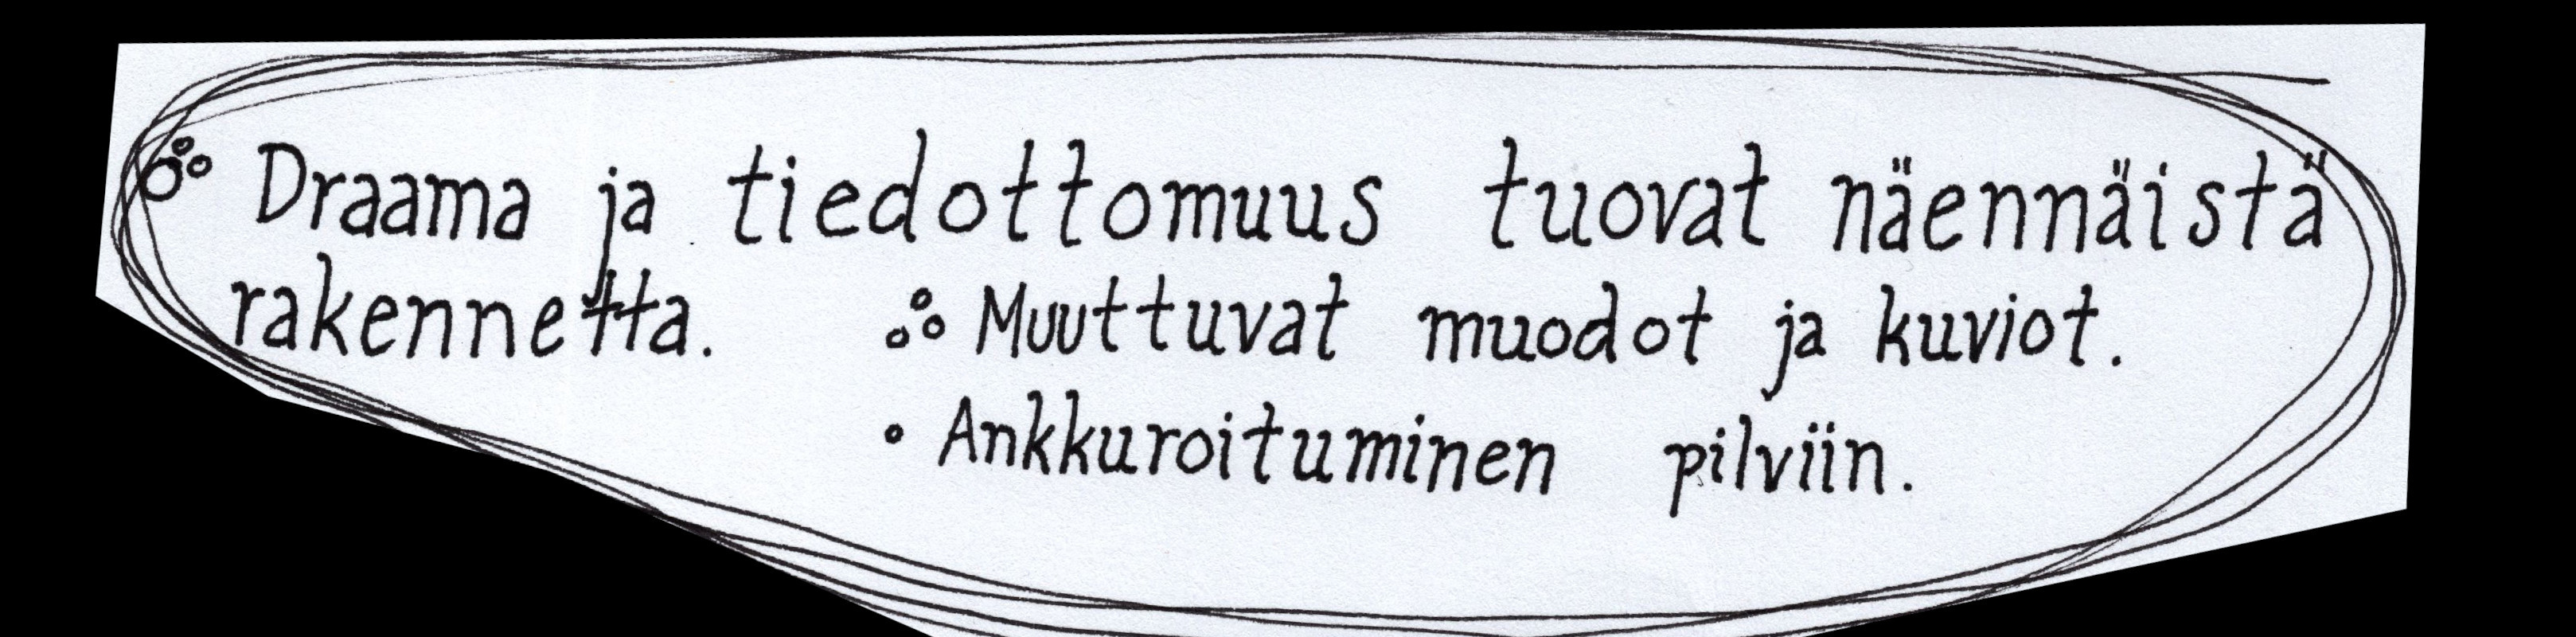 Draama ja tiedottomuus tuovat näennäistä
rakennetta. Muuttuvat muodot ja kuviot.
Ankkuroituminen pilviin.